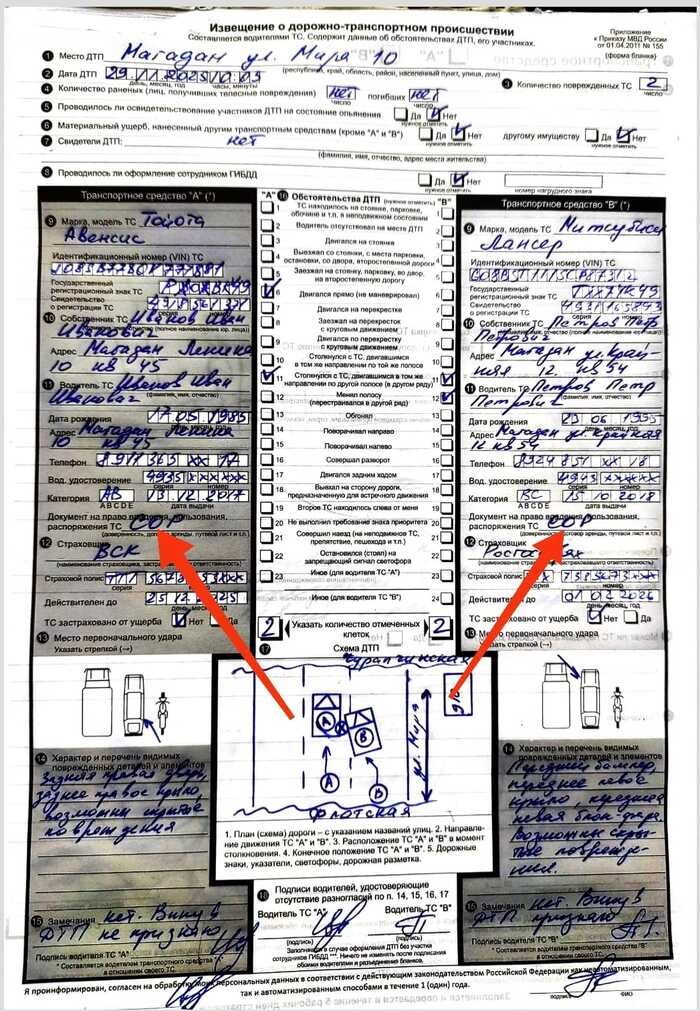 Извещение о дорожно-транспортном происшествии
Составляется водителями ТС. Содержит данные об обстоятельствах ДТП, его участниках.
Приложение
к Приказу МВД России
от 01.04.2011 № 155
(форма бланка)
1 Место ДТП Магадан ул. Мира 10
(республика, край, область, район, населенный пункт, улица, дом)
2 Дата ДТП 29.11.2025
день, месяц, год часы, минуты
3 Количество поврежденных ТС 2
число
4 Количество раненых (лиц, получивших телесные повреждения) нет погибших нет
число число
5 Проводилось ли освидетельствование участников ДТП на состояние опьянения Да Нет
нужное отметить
6 Материальный ущерб, нанесенный другим транспортным средствам (кроме "А" и "В") Да Нет другому имуществу Да Нет
нужное отметить нужное отметить
7 Свидетели ДТП: нет
(фамилия, имя, отчество, адрес места жительства)
8 Проводилось ли оформление сотрудником ГИБДД Да Нет
нужное отметить номер нагрудного знака
Транспортное средство "А" (*)
9 Марка, модель ТС Тойота
Авенсис
Идентификационный номер (VIN) ТС
Государственный
регистрационный знак ТС
Свидетельство
о регистрации ТС
серия номер
10 Собственник ТС Иванов Иван
Иванович
(фамилия, имя, отчество (полное наименование юр. лица))
Адрес Магадан Ленина
10 кв 45
11 Водитель ТС Иванов Иван
Иванович
(фамилия, имя, отчество)
Дата рождения 17.05 1985
день, месяц, год
Адрес Магадан Ленина
10 кв 45
Телефон 8911 363 xx 17
Вод. удостоверение
серия номер
Категория АВ 13.12.2017
ABCDE дата выдачи
Документ на право владения, пользования,
распоряжения ТС СОР
(доверенность, договор аренды, путевой лист и т.п.)
12 Страховщик
ВСК
(наименование страховщика, застраховавшего ответственность)
Страховой полис
серия номер
Действителен до
день, месяц, год
ТС застраховано от ущерба Нет Да
13 Место первоначального удара
Указать стрелкой (→)
14 Характер и перечень видимых
поврежденных деталей и элементов
задняя правая дверь,
заднее правое крыло,
возможны скрытые
повреждения
15 Замечания нет. Вину в
ДТП не признаю
Подпись водителя ТС "А"
* Составляется водителем транспортного средства "А"
в отношении своего ТС.
"А" 16 Обстоятельства ДТП (нужное отметить) "В"
1 ТС находилось на стоянке, парковке, обочине и т.п. в неподвижном состоянии 1
2 Водитель отсутствовал на месте ДТП 2
3 Двигался на стоянке 3
4 Выезжал со стоянки, с места парковки, остановки, со двора, второстепенной дороги 4
5 Заезжал на стоянку, парковку, во двор, на второстепенную дорогу 5
6 Двигался прямо (не маневрировал) 6
7 Двигался на перекрестке 7
8 Заезжал на перекресток с круговым движением 8
9 Двигался по перекрестку с круговым движением 9
10 Столкнулся с ТС, двигавшимся в том же направлении по той же полосе 10
11 Столкнулся с ТС, двигавшимся в том же направлении по другой полосе (в другом ряду) 11
12 Менял полосу (перестраивался в другой ряд) 12
13 Обгонял 13
14 Поворачивал направо 14
15 Поворачивал налево 15
16 Совершал разворот 16
17 Двигался задним ходом 17
18 Выехал на сторону дороги, предназначенную для встречного движения 18
19 Второе ТС находилось слева от меня 19
20 Не выполнил требование знака приоритета 20
21 Совершил наезд (на неподвижное ТС, препятствие, пешехода и т.п.) 21
22 Остановился (стоял) на запрещающий сигнал светофора 22
23 Иное (для водителя ТС "А") 23
24 Иное (для водителя ТС "В") 24
2 Указать количество отмеченных клеток 2
17 Схема ДТП
А В
А В
ул. Мира
д 10
Флотская
1. План (схема) дороги – с указанием названий улиц. 2. Направление движения ТС "А" и "В". 3. Расположение ТС "А" и "В" в момент столкновения. 4. Конечное положение ТС "А" и "В". 5. Дорожные знаки, указатели, светофоры, дорожная разметка.
18 Подписи водителей, удостоверяющие
отсутствие разногласий по п. 14, 15, 16, 17
Водитель ТС "А" Водитель ТС "В"
(подпись) (подпись)
Заполняется в случае оформления ДТП без участия
сотрудников ГИБДД ***. Ничего не изменять после подписания
обоими водителями и разъединения бланков.
Транспортное средство "В" (*)
9 Марка, модель ТС Митсубиси
Лансер
Идентификационный номер (VIN) ТС
Государственный
регистрационный знак ТС
Свидетельство
о регистрации ТС
серия номер
10 Собственник ТС Петров Петр
Петрович
(фамилия, имя, отчество (полное наименование юр. лица))
Адрес Магадан ул. Край-
няя 12 кв 54
11 Водитель ТС Петров Петр
Петрович
(фамилия, имя, отчество)
Дата рождения 23 06 1995
день, месяц, год
Адрес Магадан ул. Крайняя
12 кв 54
Телефон 8924 851 xx 18
Вод. удостоверение
серия номер
Категория ВС 15 10 2018
ABCDE дата выдачи
Документ на право владения, пользования,
распоряжения ТС СОР
(доверенность, договор аренды, путевой лист и т.п.)
12 Страховщик
Росгосстрах
Страховой полис
серия номер
Действителен до 01 02 2026
день, месяц, год
ТС застраховано от ущерба Нет Да
13 Место первоначального удара
Указать стрелкой (→)
14 Характер и перечень видимых
поврежденных деталей и элементов
Передний бампер,
переднее левое
крыло, передняя
левая блок-фара.
Возможны скры-
тые поврежде-
ния.
15 Замечания нет. Вину в
ДТП признаю
Подпись водителя ТС "В"
* Составляется водителем транспортного средства "В"
в отношении своего ТС.
Я проинформирован, согласен на обработку моих персональных данных в соответствии с действующим законодательством Российской Федерации как неавтоматизированным,
так и автоматизированным способами в течение 1 (один) года.
подпись ФИО